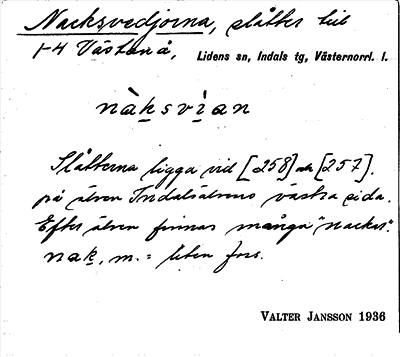 Nacksvedjorna, slåtter till
1-4 Västanå, Lidens sn, Indals tg, Västernorrl. l.
nàksvìan
Slåtterna ligga vid [258] och [257],
på älven Indalsälvens västra sida.
Efter älven finnas många "nackar".
nak, m. = liten fors.
VALTER JANSSON 1936